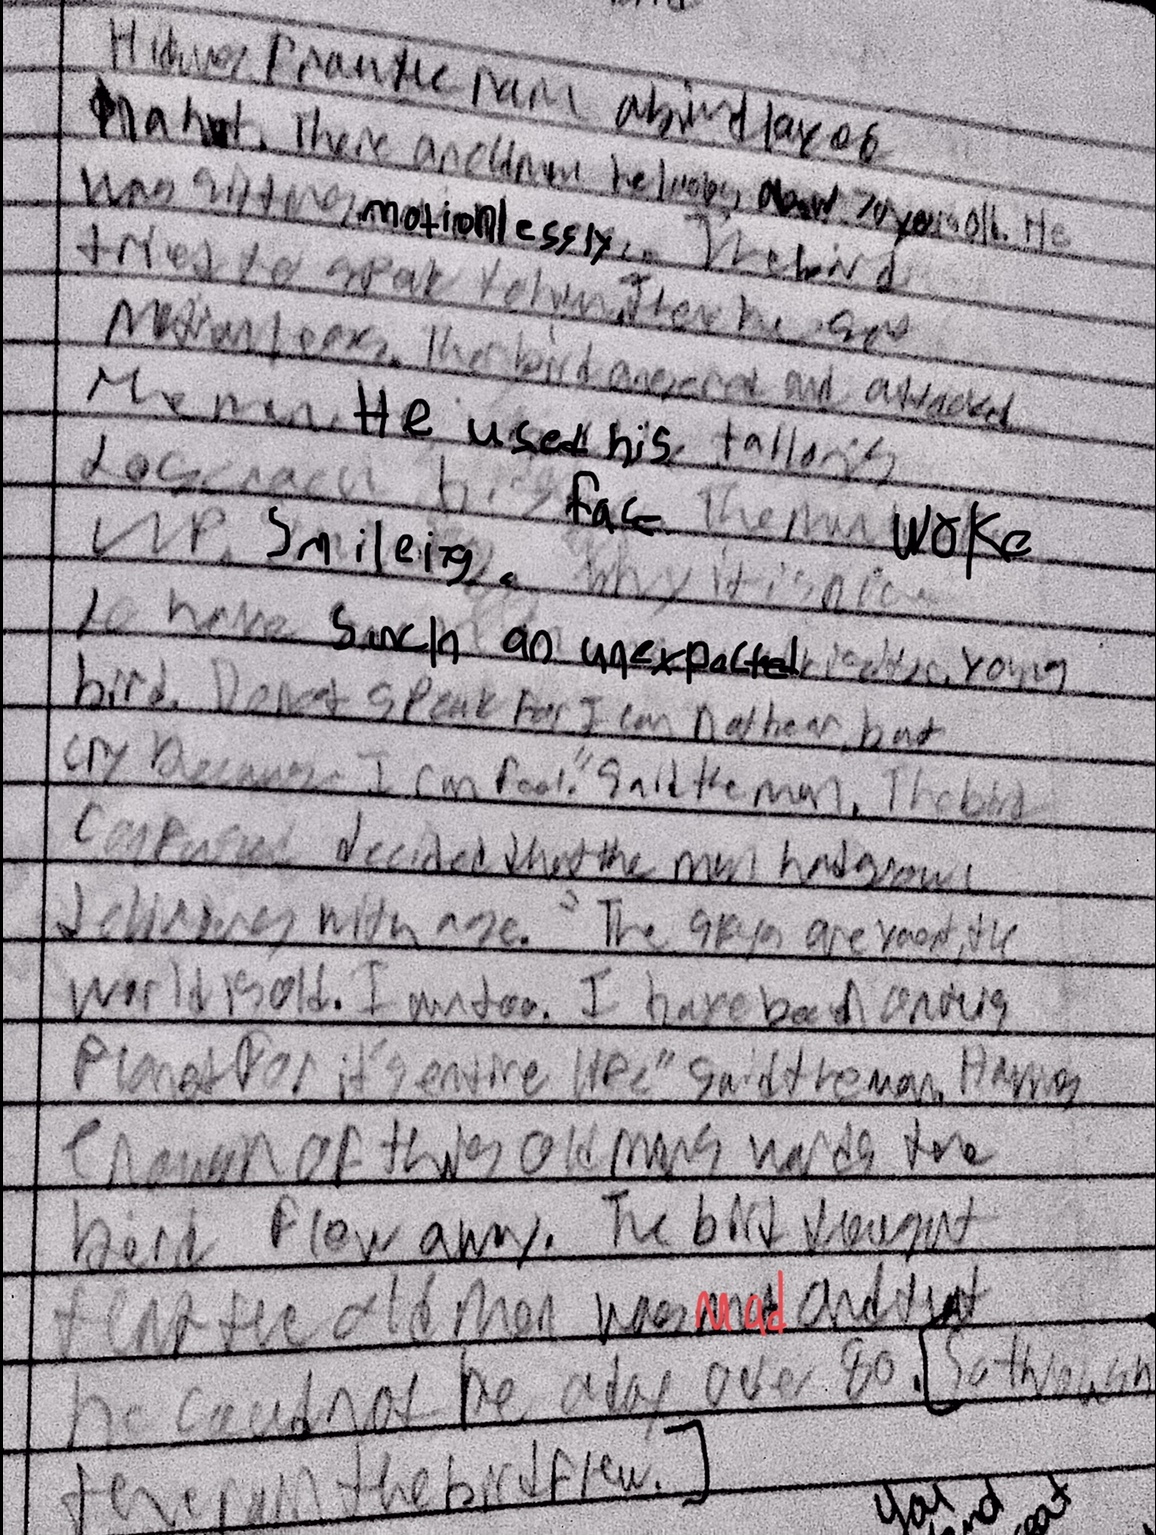 Hiding from the rain a bird lay on
a hut. There an old man he looks about 70 years old. He
was sitting motionlessly. The bird
tried to speak to him. There he sat
Motionless. The bird angered and attacked
The man. He used his tallons
to scrach his face. The man woke
UP. Smileing. Why it is nice
to have such an unexpacted visiter, young
bird. Do not speak for I can not hear, but
cry because I can feel." Said the man. The bird
Confused decided that the man had grown
delirious with age. "The skys are vast, the
world is old. I am too. I have been on this
Planet for it's entire life" Said the man. Having
enough of this old mans words the
bird flew away. The bird thought
that the old man was mad and that
he could not be a day over 80. [So through
the rain the bird flew.]
You
and